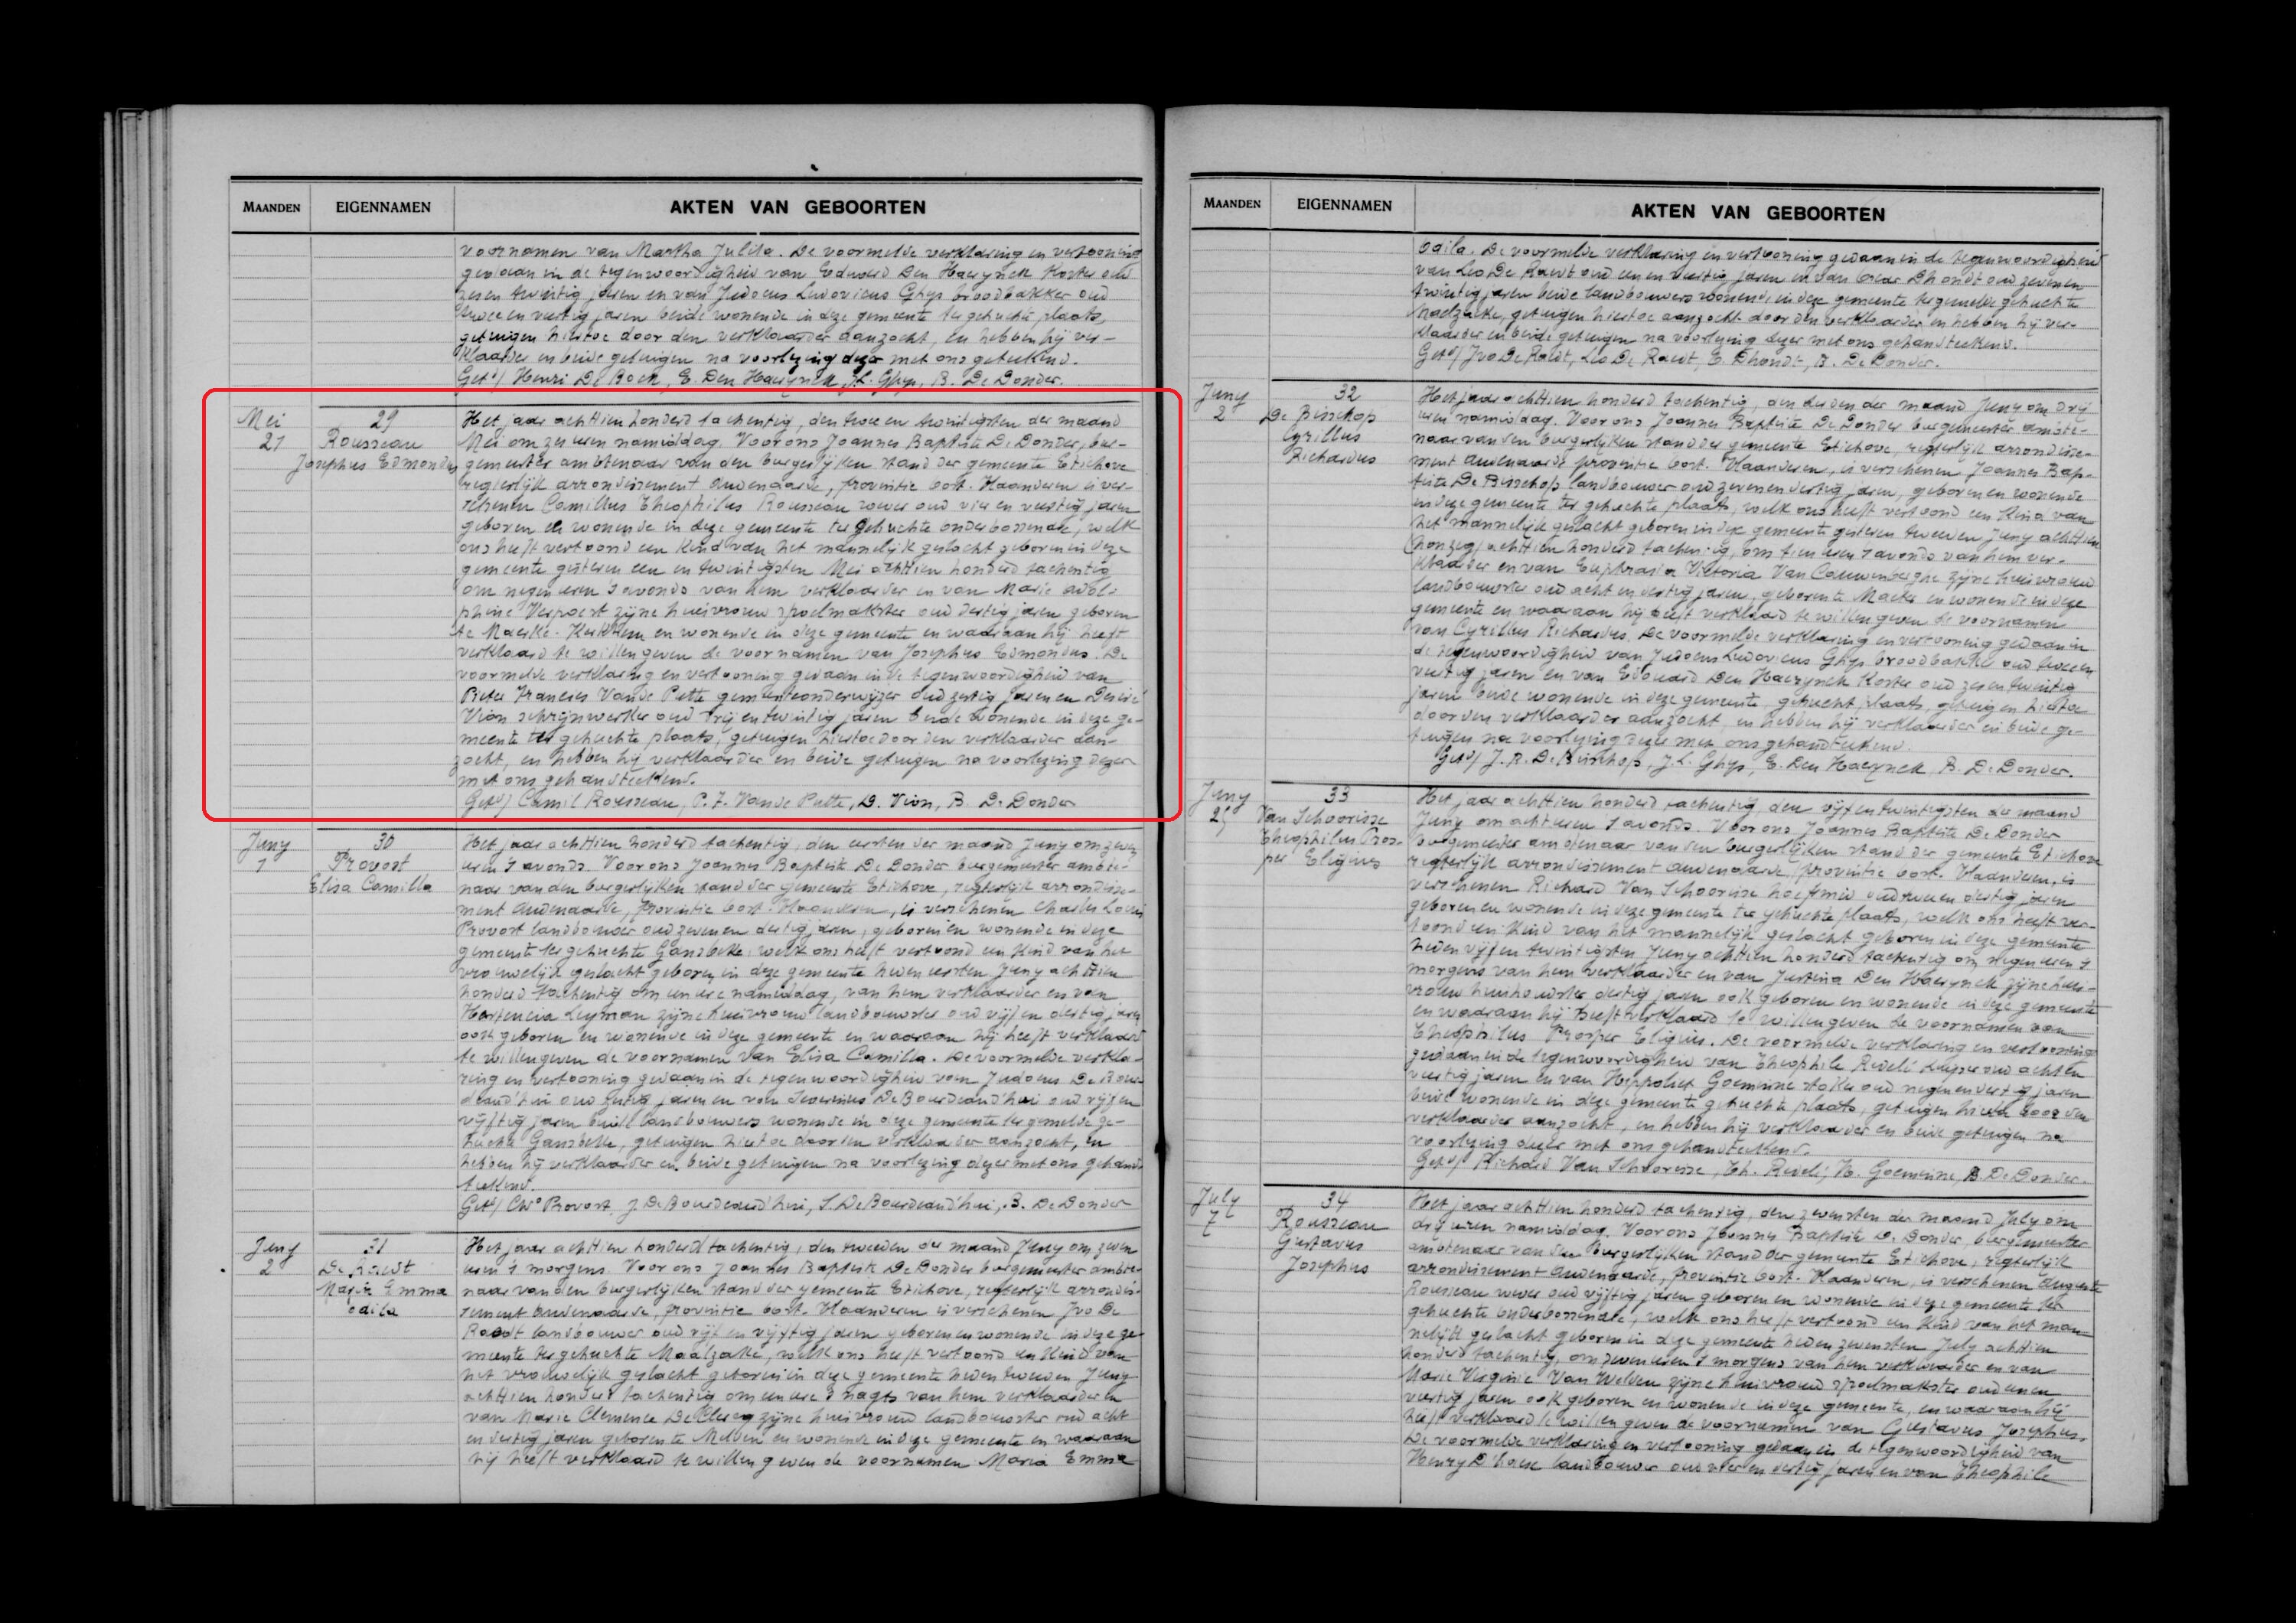 MAANDEN EIGENNAMEN AKTEN VAN GEBOORTEN
voornamen van Martha Julita. De voormelde verklaring en vertooning
gedaan in de tegenwoordigheid van Eduard Den Haerynck Koster oud
zes en twintig jaren en van Judocus Ludovicus Ghys broodbakker oud
twee en veertig jaren beide wonende in deze gemeente ter gehuchte plaats,
getuigen hiertoe door den verklaarder aanzocht, en hebben hij ver-
klaarder en beide getuigen na voorlezing dezer met ons geteekend.
Getd/ Henri De Bock, E. Den Haerynck, J.L. Ghys, B. De Donder.
Mei
21
29
Rousseau
Josephus Edmondus
Het jaar achttien honderd tachentig, den twee en twintigsten der maand
Mei om zes uren namiddag. Voor ons Joannes Baptiste De Donder, bur-
gemeester ambtenaar van den burgerlijken stand der gemeente Etichove
regterlijk arrondissement Audenaarde, provintie Oost-Vlaanderen is ver-
schenen Camillus Theophilus Rousseau wever oud vier en veertig jaren
geboren en wonende in deze gemeente ter gehuchte onderbossenare, welk
ons heeft vertoond een Kind van het mannelijk geslacht geboren in deze
gemeente gisteren een en twintigsten Mei achttien honderd tachentig
om negen uren 's avonds van hem verklaarder en van Marie Adol-
phine Verpoert zijne huisvrouw spoelmakster oud dertig jaren geboren
te Maerke-Kerkhem en wonende in deze gemeente en waaraan hij heeft
verklaard te willen geven de voornamen van Josephus Edmondus. De
voormelde verklaring en vertooning gedaan in de tegenwoordigheid van
Pieter Francies Vande Putte gemeenteonderwijzer oud zestig jaren en Desiré
Vion schrijnwerker oud drij en twintig jaren beide wonende in deze ge-
meente ter gehuchte plaats, getuigen hiertoe door den verklaarder aan-
zocht, en hebben hij verklaarder en beide getuigen na voorlezing dezer
met ons gehandteekend.
Getd/ Camil Rousseau, P. F. Vande Putte, D. Vion, B. De Donder
Juny
1
30
Provost
Elisa Camilla
Het jaar achttien honderd tachentig, den eersten der maand Juny om zeven
uren 's avonds. Voor ons Joannes Baptiste De Donder burgemeester ambte-
naar van den burgerlijken stand der gemeente Etichove, regterlijk arrondisse-
ment Audenaarde, provintie Oost-Vlaanderen, is verschenen Charles Louis
Provost landbouwer oud zeven en dertig jaren, geboren en wonende in deze
gemeente ter gehuchte Gansbeke, welk ons heeft vertoond een Kind van het
vrouwelijk geslacht geboren in deze gemeente heden eersten Juny achttien
honderd tachentig om een ure namiddag, van hem verklaarder en van
Hortencia Leyman zijne huisvrouw landbouwster oud vijf en dertig jaren
ook geboren en wonende in deze gemeente en waaraan hij heeft verklaard
te willen geven de voornamen van Elisa Camilla. De voormelde verkla-
ring en vertooning gedaan in de tegenwoordigheid van Judocus De Bour-
deaud'hui oud zestig jaren en van Severinus De Bourdeaud'hui oud vijf en
vijftig jaren beide landbouwers wonende in deze gemeente ter gemelde ge-
huchte Gansbeke, getuigen hiertoe door den verklaarder aanzocht, en
hebben hij verklaarder en beide getuigen na voorlezing dezer met ons gehand-
teekend.
Getd/ Chs Provost, J. De Bourdeaud'hui, S. De Bourdeaud'hui, B. De Donder
Juny
2
31
De Raedt
Marie Emma
Odila
Het jaar achttien honderd tachentig, den tweeden der maand Juny om zeven
uren 's morgens. Voor ons Joannes Baptiste De Donder burgemeester ambte-
naar van den burgerlijken stand der gemeente Etichove, regterlijk arrondis-
sement Audenaarde, provintie Oost-Vlaanderen is verschenen Ivo De
Raedt landbouwer oud vijf en vijftig jaren geboren en wonende in deze ge-
meente ter gehuchte Maalzake, welk ons heeft vertoond een Kind van
het vrouwelijk geslacht geboren in deze gemeente heden tweeden Juny
achttien honderd tachentig om een ure 's nagts van hem verklaarder en
van Marie Clemence De Clercq zijne huisvrouw landbouwster oud acht
en dertig jaren geboren te Melden en wonende in deze gemeente en waaraan
hij heeft verklaard te willen geven de voornamen Maria Emma
MAANDEN EIGENNAMEN AKTEN VAN GEBOORTEN
Odila. De voormelde verklaring en vertooning gedaan in de tegenwoordigheid
van Leo De Raedt oud een en veertig jaren en van Oscar Dhondt oud zeven en
twintig jaren beide landbouwers wonende in deze gemeente ter gemelde gehuchte
Maelzake, getuigen hiertoe aanzocht door den verklaarder en hebben hij ver-
klaarder en beide getuigen na voorlezing dezer met ons gehandteekend.
Getd/ Ivo De Raedt, Leo De Raedt, E. Dhondt, B. De Donder.
Juny
2
32
De Bisschop
Cyrillus
Richardus
Het jaar achttien honderd tachentig, den derden der maand Juny om drij
uren namiddag. Voor ons Joannes Baptiste De Donder burgemeester ambte-
naar van den burgerlijken stand der gemeente Etichove, regterlijk arrondisse-
ment Audenaarde provintie Oost-Vlaanderen, is verschenen Joannes Bap-
tiste De Bisschop landbouwer oud zeven en dertig jaren, geboren en wonende
in deze gemeente ter gehuchte plaats, welk ons heeft vertoond een Kind van
het mannelijk geslacht geboren in deze gemeente gisteren tweeden Juny achttien
honderd achttien honderd tachentig, om tien uren 's avonds van hem ver-
klaarder en van Euphrasia Victoria Van Cauwenberghe zijne huisvrouw
landbouwster oud acht en dertig jaren, geboren te Maeter en wonende in deze
gemeente en waaraan hij heeft verklaard te willen geven de voornamen
van Cyrillus Richardus. De voormelde verklaring en vertooning gedaan in
de tegenwoordigheid van Judocus Ludovicus Ghys broodbakker oud twee en
veertig jaren en van Edouard Den Haerynck Koster oud zes en twintig
jaren beide wonende in deze gemeente, gehucht plaats, getuigen hiertoe
door den verklaarder aanzocht, en hebben hij verklaarder en beide ge-
tuigen na voorlezing dezer met ons gehandteekend.
Getd/ J. B. De Bisschop, J. L. Ghys, E. Den Haerynck, B. De Donder.
Juny
25
33
Van Schoorisse
Theophilus Pros-
per Eligius
Het jaar achttien honderd tachentig, den vijf en twintigsten der maand
Juny om acht uren 's avonds. Voor ons Joannes Baptiste De Donder
burgemeester ambtenaar van den burgerlijken stand der gemeente Etichove
regterlijk arrondissement Audenaarde, provintie Oost-Vlaanderen, is
verschenen Richard Van Schoorisse hoefsmid oud twee en dertig jaren
geboren en wonende in deze gemeente ter gehuchte plaats, welk ons heeft ver-
toond een Kind van het mannelijk geslacht geboren in deze gemeente
heden vijf en twintigsten Juny achttien honderd tachentig om negen uren 's
morgens van hem verklaarder en van Justina Den Haerynck zijne huis-
vrouw huishoudster dertig jaren ook geboren en wonende in deze gemeente
en waaraan hij heeft verklaard te willen geven de voornamen van
Theophilus Prosper Eligius. De voormelde verklaring en vertooning
gedaan in de tegenwoordigheid van Theophile Redelé oud acht en
veertig jaren en van Hippoliet Goeminne oud negen en veertig jaren
beide wonende in deze gemeente gehuchte plaats, getuigen hiertoe door den
verklaarder aanzocht, en hebben hij verklaarder en beide getuigen na
voorlezing dezer met ons gehandteekend.
Getd/ Richard Van Schoorisse, Th. Redelé, H. Goeminne, B. De Donder.
July
7
34
Rousseau
Gustavus
Josephus
Het jaar achttien honderd tachentig, den zevensten der maand July om
drij uren namiddag. Voor ons Joannes Baptiste De Donder, burgemeester
ambtenaar van den burgerlijken stand der gemeente Etichove, regterlijk
arrondissement Audenaarde, provintie Oost-Vlaanderen, is verschenen Auguste
Rousseau wever oud vijftig jaren geboren en wonende in deze gemeente ter
gehuchte onderbossenare, welk ons heeft vertoond een Kind van het man-
nelijk geslacht geboren in deze gemeente heden zevensten July achttien
honderd tachentig, om zeven uren 's morgens van hem verklaarder en van
Marie Virginie Van Welden zijne huisvrouw spoelmakster oud eenen
veertig jaren ook geboren en wonende in deze gemeente, en waaraan hij
heeft verklaard te willen geven de voornamen van Gustavus Josephus.
De voormelde verklaring en vertooning gedaan in de tegenwoordigheid van
Henry D'hoese landbouwer oud vier en dertig jaren en van Theophile